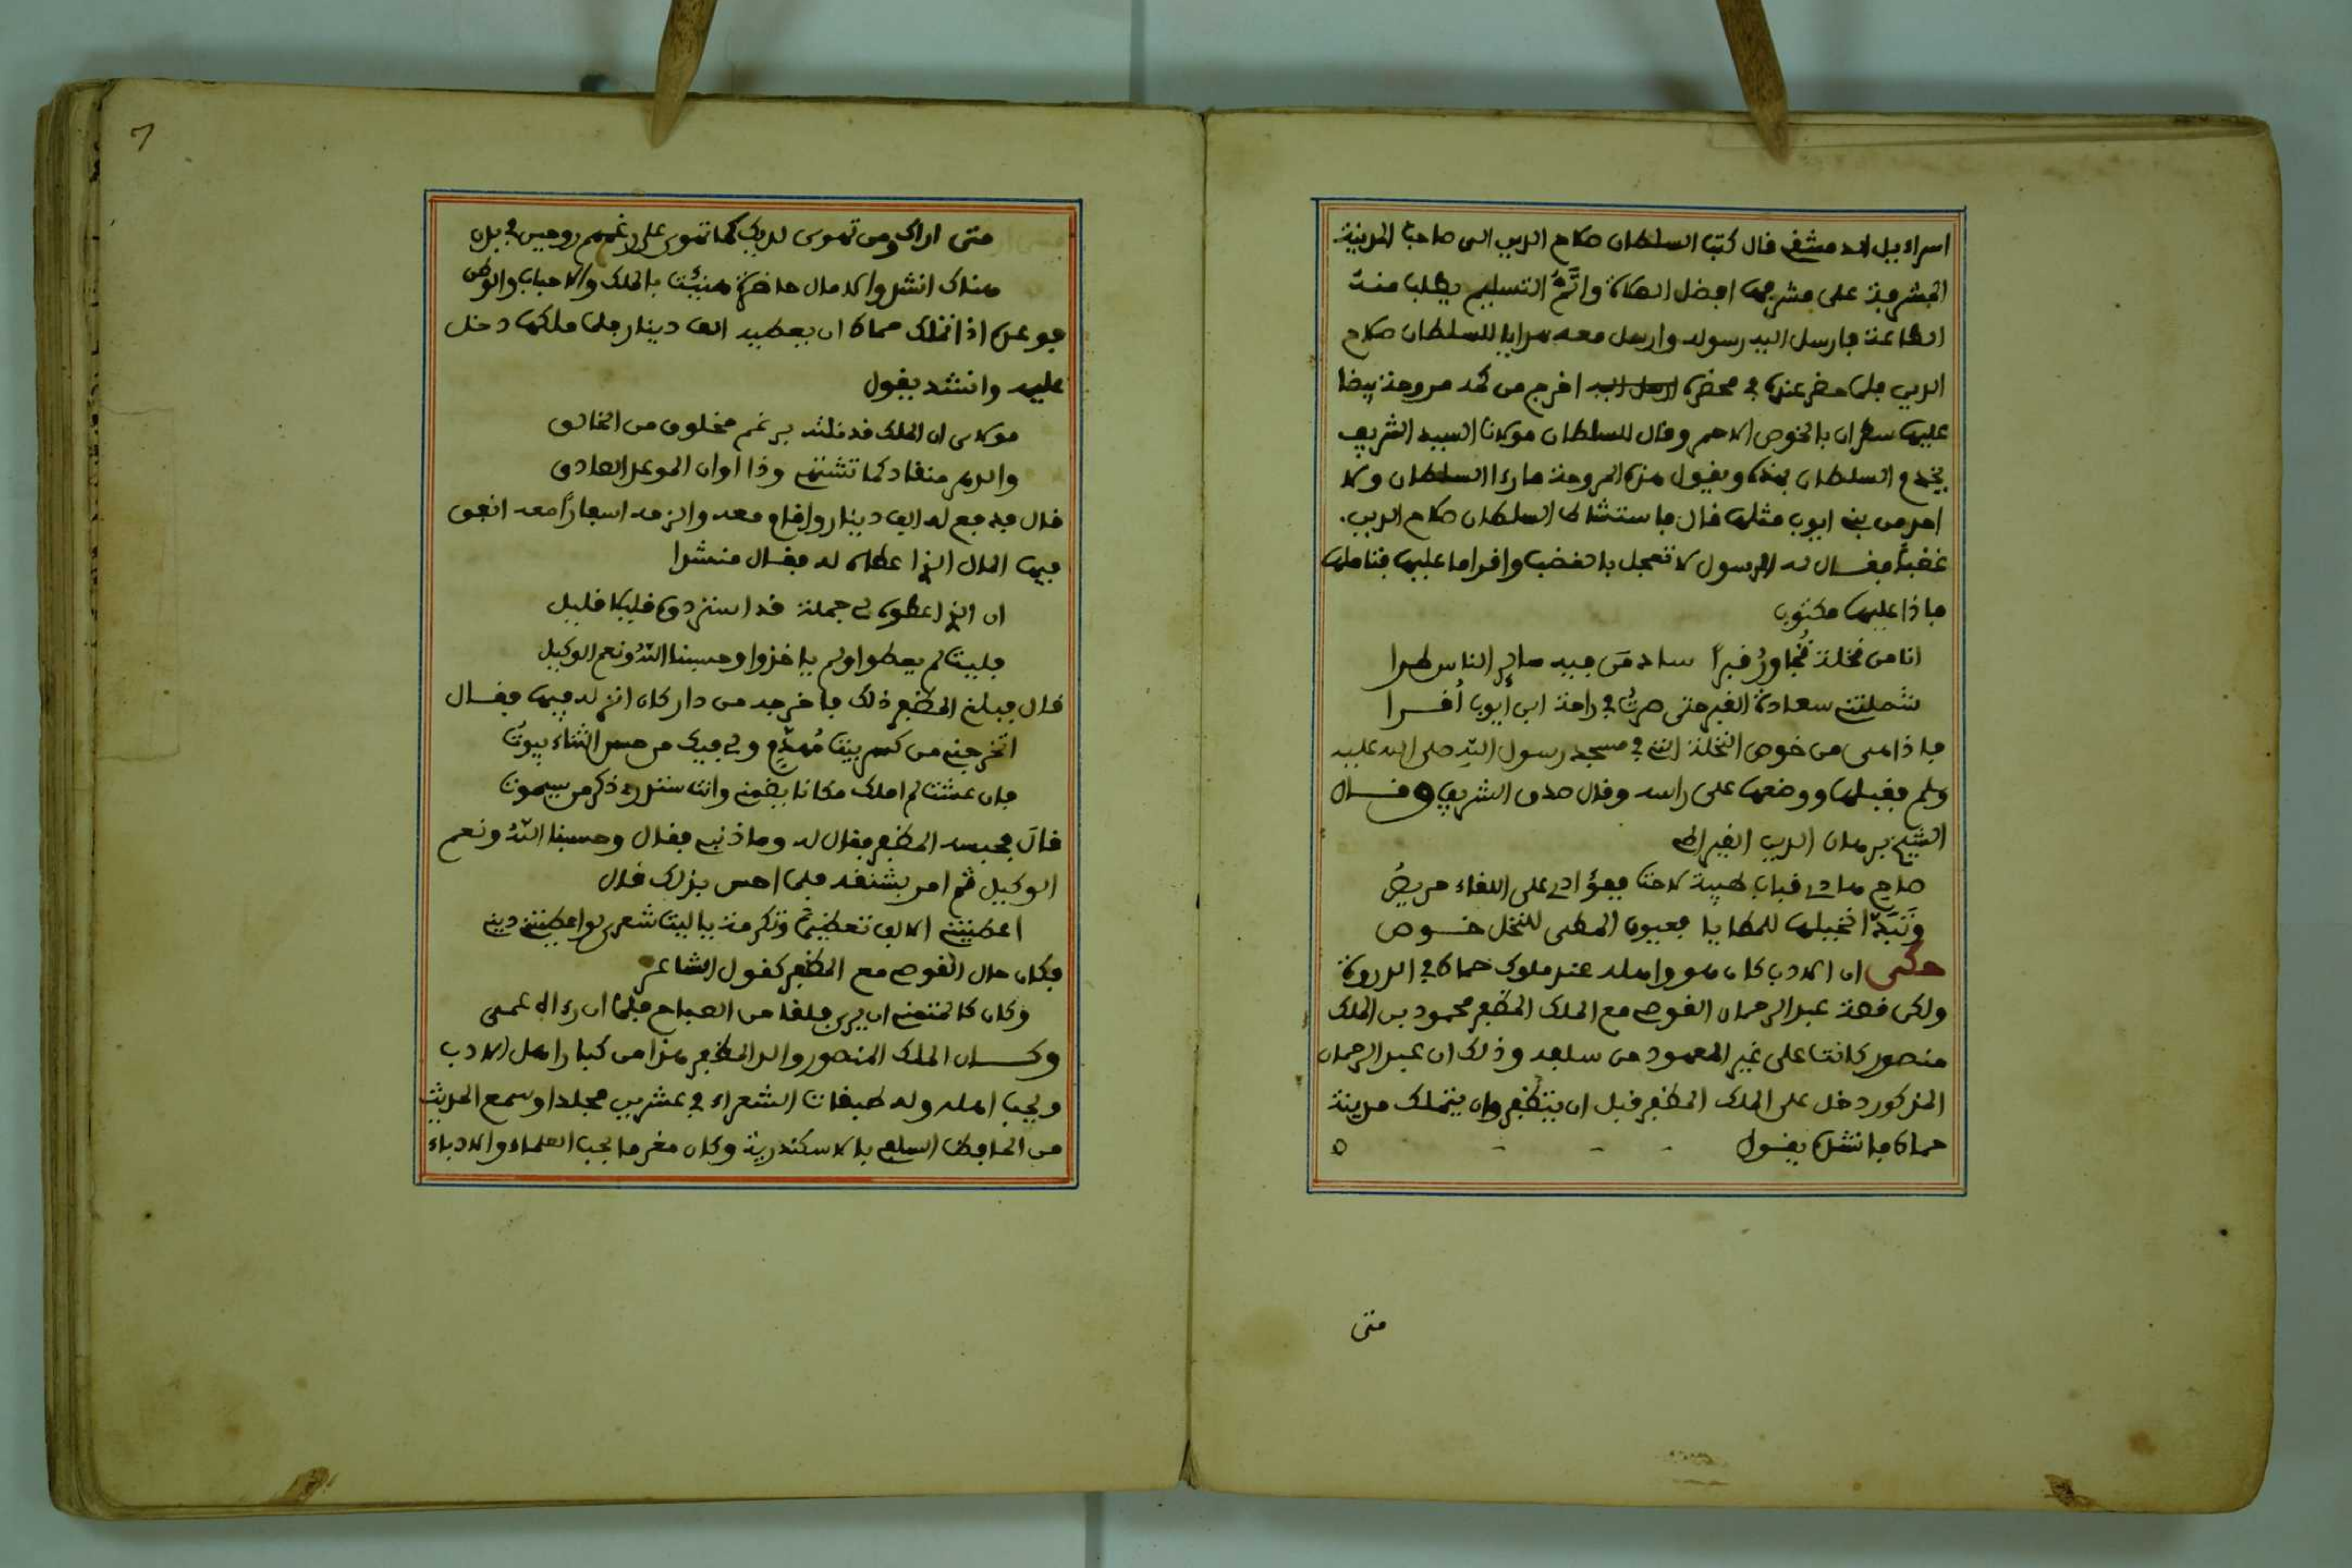 اسراءيل الدمشقي قال كتب السلطان صلاح الدين الى صاحب المدينة
المشرفة على مشرفها افضل الصلاة واتم التسليم يطلب منه
الطاعة فارسل اليه رسوله وارسل معه هدايا للسلطان صلاح
الدين فلما حضر عنده في محضره اخرج من كمه مروحة بيضا
عليها سطران بالخوص الاحمر وقال للسلطان مولانا السيد الشريف
يخدم السلطان بهذه ويقول هذه المروحة ما رءا السلطان ولا
احد من بني ايوب مثلها قال فاستشاط السلطان صلاح الدين
غضبًا فقال له الرسول لا تعجل بالغضب واقرا ما عليها فتاملها
فاذا عليها مكتوب
انا من نخلة تُجاورُ قبرًا ساد مَن فيه سائر الناس طرا
شملتني سعادة القبر حتى صرتُ في راحة ابن أيوب أقرا
فاذا هى من خوص النخلة التي في مسجد رسول اللّه صلى الله عليه
وسلم فقبلها ووضعها على راسه وقال صدق الشريف وقال
الشيخ برهان الدين القيراطي
صاح هذي قباب طيبة لاحت ففؤادي على اللقاء حريصُ
وتَبَدّا نخيلها للمطايا فعيون المطى للنخل خوص
حكى ان الادب كان هو واهله عند ملوك حماة في الدروة
ولكن قصة عبد الرحمان القوصي مع الملك المظفر محمود بن الملك
منصور كانت على غير المعهود من سلفه وذلك ان عبد الرحمان
المذكور دخل على الملك المظفر قبل ان يتظفر وان يتملك مدينة
حماة فانشده يقول
متى
متى اراك ومن تهوى لديك كما تهوى على رغمهم روحين في بدن
هناك انشد والامال حاضرة هنيت بالملك والاحباب والوطن
فوعده اذا تملك حماة ان يعطيه الف دينار فلما ملكها دخل
عليه وانشد يقول
مولاى ان الملك قد نلته برغم مخلوق من الخالق
والدهر منقاد كما تشتهي وذا اوان الموعد الصادق
قال فدفع له الف دينار واقام معه والزمه اسفارًا معه انفق
فيها المال الذي اعطاه له فقال منشدا
ان الذي اعطوه لي جملة قد استردوه قليلا قليل
فليت لم يعطوا ولم ياخذوا وحسبنا اللّهُ ونعم الوكيل
قال فبلغ المظفر ذلك فاخرجه من دار كان انزله فيها فقال
اتخرجني من كسر بيت مُهدّمٍ ولي فيك من حسن الثناء بيوتُ
فان عشت لم املك مكانا يضمني وانت ستدري ذكر من سيموت
قال فحبسه المظفر فقال له وما ذنبي فقال وحسبنا اللّهُ ونعم
الوكيل ثم امر بشنقه فلما احس بذلك قال
اعطيتني الالف تعظيمًا وتكرمة يا ليت شعري لو اعطيتني ديتي
فكان حال القوصي مع المظفر كقول الشاعر
وكان كالمتمني ان يرى فلقا من الصباح فلما ان رءاه عمى
وكان الملك المنصور والد المظفر هذا من كبار اهل الادب
ويحب اهله وله طبقات الشعراء في عشرين مجلدا وسمع الحديث
من الحافظ السلفي بالاسكندرية وكان مغرما بحب العلماء والادباء